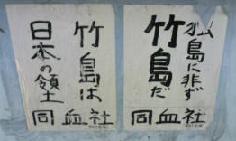 独島に非ず
竹島だ
同血社
竹島は
日本の領土
同血社